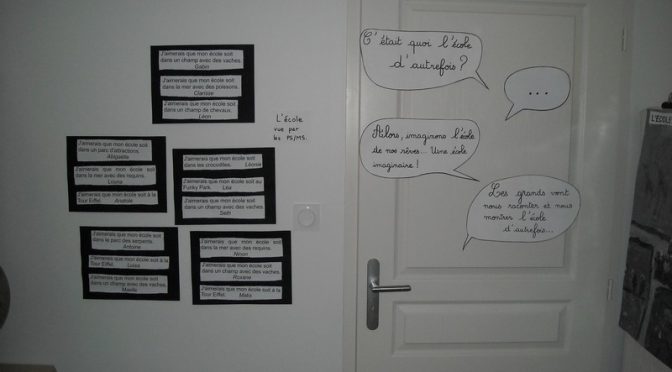 J'aimerais que mon école soit
dans un champ avec des vaches.
Gabin
J'aimerais que mon école soit
dans la mer avec des poissons.
Clarisse
J'aimerais que mon école soit
dans un champ de chevaux.
Léon
L'école
vue par
les PS/MS.
J'aimerais que mon école soit
dans un parc d'attractions.
J'aimerais que mon école soit
dans la mer avec des requins.
Louna
J'aimerais que mon école soit à la
Tour Eiffel. Anatole
J'aimerais que mon école soit
dans les crocodiles. Léonie
J'aimerais que mon école soit au
Funky Park. Léa
J'aimerais que mon école soit
dans un champ avec des vaches.
Seth
J'aimerais que mon école soit
dans le parc des serpents.
Antoine
J'aimerais que mon école soit à la
Tour Eiffel. Luisa
J'aimerais que mon école soit
dans un champ avec des vaches.
Maelle
J'aimerais que mon école soit
dans la mer avec des requins.
Ninon
J'aimerais que mon école soit
dans un champ avec des vaches.
Roxane
J'aimerais que mon école soit à la
Tour Eiffel.
C'était quoi l'école
d'autrefois ?
...
Alors, imaginons l'école
de nos rêves... Une école
imaginaire !
Les grands vont
nous raconter et nous
montrer l'école
d'autrefois...
L'ÉCOLE